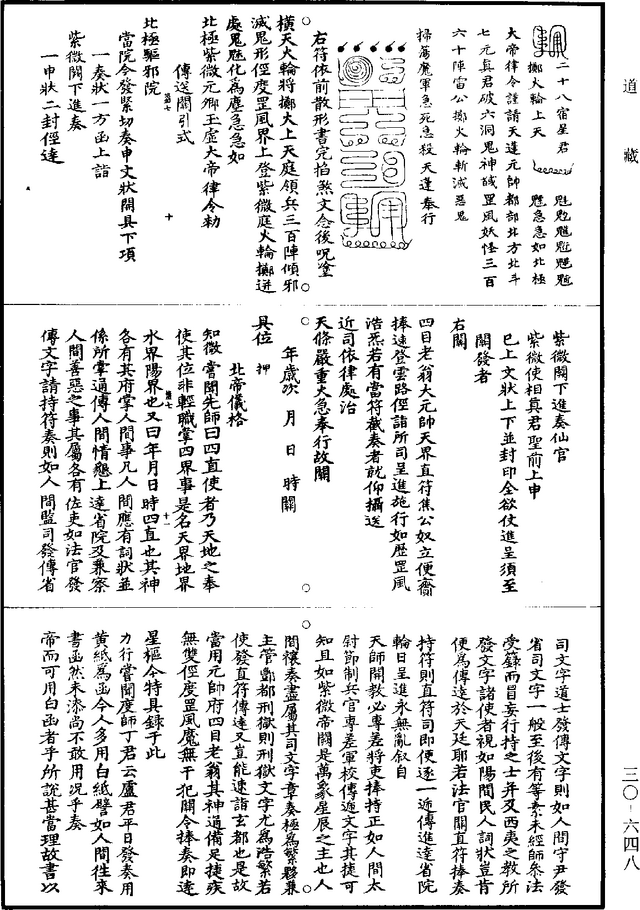 道藏
二十八宿星君
擲火輪上天
魁𩲃䰢魓魒
魁急急如北極
大帝律令謹請天蓬元帥都部北方北斗
七元真君破六洞鬼神馘罡風妖怪三百
六十陣雷公擲火輪斬滅惡鬼
掃蕩魔軍急死急殺天蓬奉行
右符依前散形書完掐煞文念後呪塗
橫天火輪將擲火上天庭領兵三百陣傾邪
滅鬼形徑度罡風界上登紫微庭火輪擲迸
處鬼魅化為塵急急如
北極紫微元卿玉虛大帝律令勑
傳送關引式
北極驅邪院
當院今發緊切奏申文狀開具下項
一奏狀一方函上詣
紫微闕下進奏
一申狀二封徑達
紫微闕下進奏仙官
紫微使相真君聖前上申
已上文狀上下並封印全欲仗進呈須至
關發者
右關
四目老翁大元帥天界直符焦公奴立便齎
捧速登雲路徑詣所司呈進施行如歷罡風
浩炁若有當符截奏者就仰攝送
近司依律處治
天條嚴重火急奉行故關
年歲次 月 日 時關
具位 押
北帝儀格
知微嘗聞先師曰四直使者乃天地之奉
使其位非輕職掌四界事是名天界地界
水界陽界也又曰年月日時四直也其神
各有其府掌人間事凡人間應有詞狀並
係所掌通傳人間情懇上達省院及兼察
人間善惡之事其屬各有佐吏如法官發
傳文字請持符奏則如人間監司發傳省
司文字道士發傳文字則如人間守尹發
省司文字一般至後有等素未經師參法
受籙而冒妄行持之士并及西夷之教所
發文字諸使者視如陽間民人詞狀豈肯
便為傳達於天廷耶若法官關直符捧奏
持符則直符司即便逐一遞傳進達省院
輪日呈進永無亂叙自
天師開教必專差將吏捧持正如人間太
尉節制兵官專差軍校傳遞文字其捷可
知且如紫微帝闕是萬象星辰之主也人
間禳奏盡屬其司文字章奏極為繁夥兼
主管酆都刑獄則刑獄文字尤為浩繁若
使發直符傳達又豈能速詣玄都也是故
當用元帥府四目老翁其神通備足捷疾
無雙徑度罡風魔無干犯關令捧奏即達
星樞今特具錄于此
力行嘗聞度師丁君云盧君平日發奏用
黃紙為函今人多用白紙譬如人間往來
書函然未漆尚不敢用況乎奏
帝而可用白函者乎所說甚當理故書以
三〇-六四八